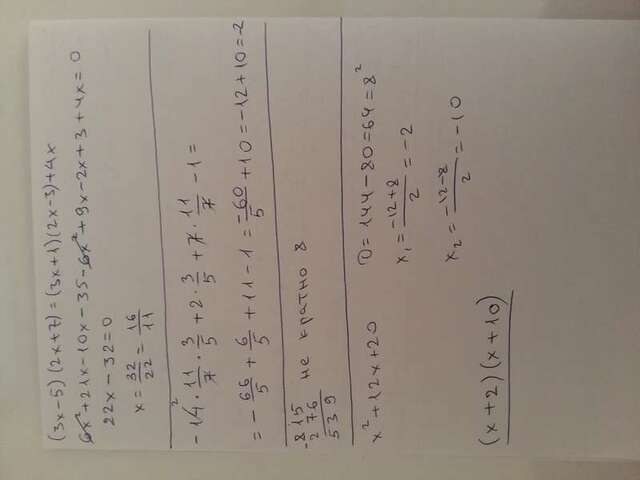 (3x-5)(2x+7)=(3x+1)(2x-3)+4x
6x²+21x-10x-35-6x²+9x-2x+3+4x=0
22x-32=0
x=32/22=16/11
-14²·11/7·3/5+2·3/5+7·11/7-1=
=-66/5+6/5+11-1=-60/5+10=-12+10=-2
-815
276
539
не кратно 8
x²+12x+20
D=144-80=64=8²
x₁=-12+8/2=-2
x₂=-12-8/2=-10
(x+2)(x+10)